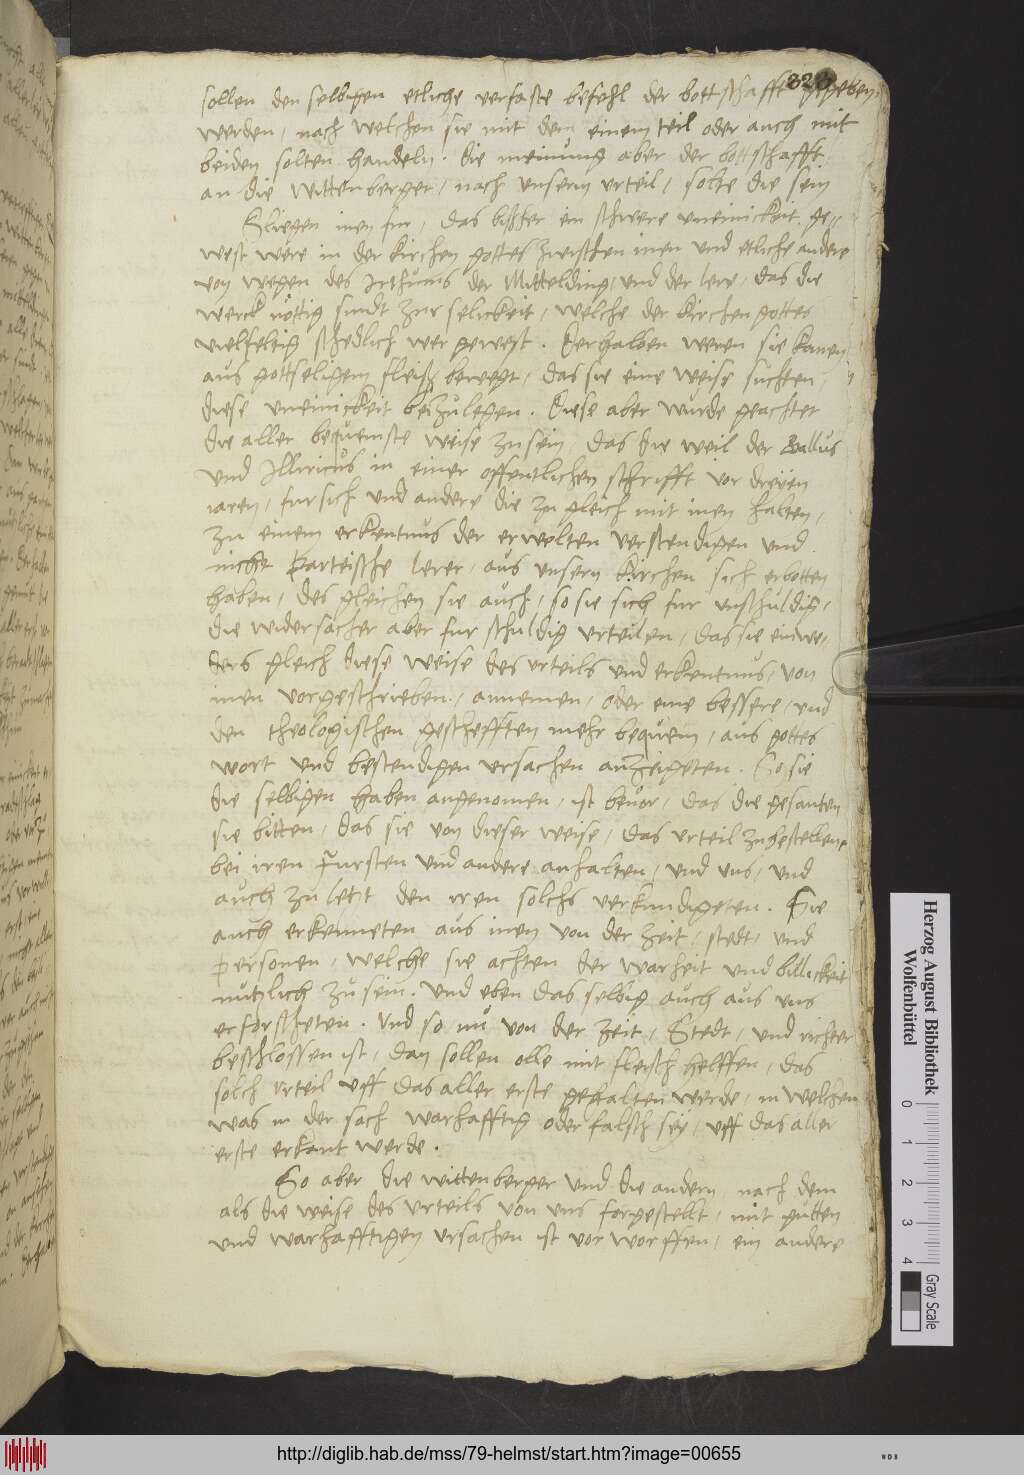 323
sollen den selbigen etliche verfaste befehl der bottschafft gegeben
werden, nach welchen sie mit dem einem teil oder auch mit
beiden solten handeln. die meinung aber der bottschafft
an die Wittenberger, nach unserm urteil, solte die sein
inen fur, das bißher ein schwere uneinickeit ge-
west were in der kirchen gottes zwischen inen und etliche andere
von wegen des Irthums der Mittelding, und der lere, das die
werck nöttig sindt zur selickeit, welche der kirchen gottes
vielfeltig schedlich wer gewest. Derhalben weren sie kamen
aus gottseligem fleiß bewegt, das sie eine weise suchten,
diese uneinickeit beizulegen. Diese aber wurde geachtet
die aller bequemste weise zu sein, das die weil der Gallus
und Illiricus in einer offentlichen schrifft vor dreien
iaren, fur sich und andere die zu gleich mit inen halten,
zu einem erkentnus der erwelten verstendigen und
nicht Parteische lerer, aus unsern kirchen sich erbotten
haben, des gleichen sie auch, so sie sich fur unschuldig,
die widersacher aber fur schuldig urteilen, das sie eintwe-
ders gleich diese weise des urteils und erkentnus, von
inen vorgeschrieben, annemen, oder eine bessere, und
den theologischen geschefften mehr bequem, aus gottes
wort und bestendigen ursachen anzeigeten. So sie
die selbigen haben angenomen, ist bevor, das die gesanten
sie bitten, das sie von dieser weise, das urteil zu bestellen,
bei iren Fursten und andere anhalten, und uns, und
auch zu letzt den iren solchs verkundigeten. Sie
auch erkenneten aus inen von der zeit, stedt, und
personen, welche sie achten der warheit und billickeit
nutzlich zu sein. und eben das selbig auch aus uns
erforscheten. Und so nu von der zeit, Stedt, und richter
beschlossen ist, dan sollen alle mit fleisch helffen, das
solch urteil uff das aller erste gehalten werde, in welchen
was in der sach warhafftig oder falsch sey, uff das aller
erste erkant werde.
So aber die wittenberger und die andern, nach dem
als die weise des urteils von uns forgestellt, mit gutten
und warhafftigen ursachen ist vorworffen, ein andere
Herzog August Bibliothek
Wolfenbüttel
0 1 2 3 4
Gray Scale
http://diglib.hab.de/mss/79-helmst/start.htm?image=00655